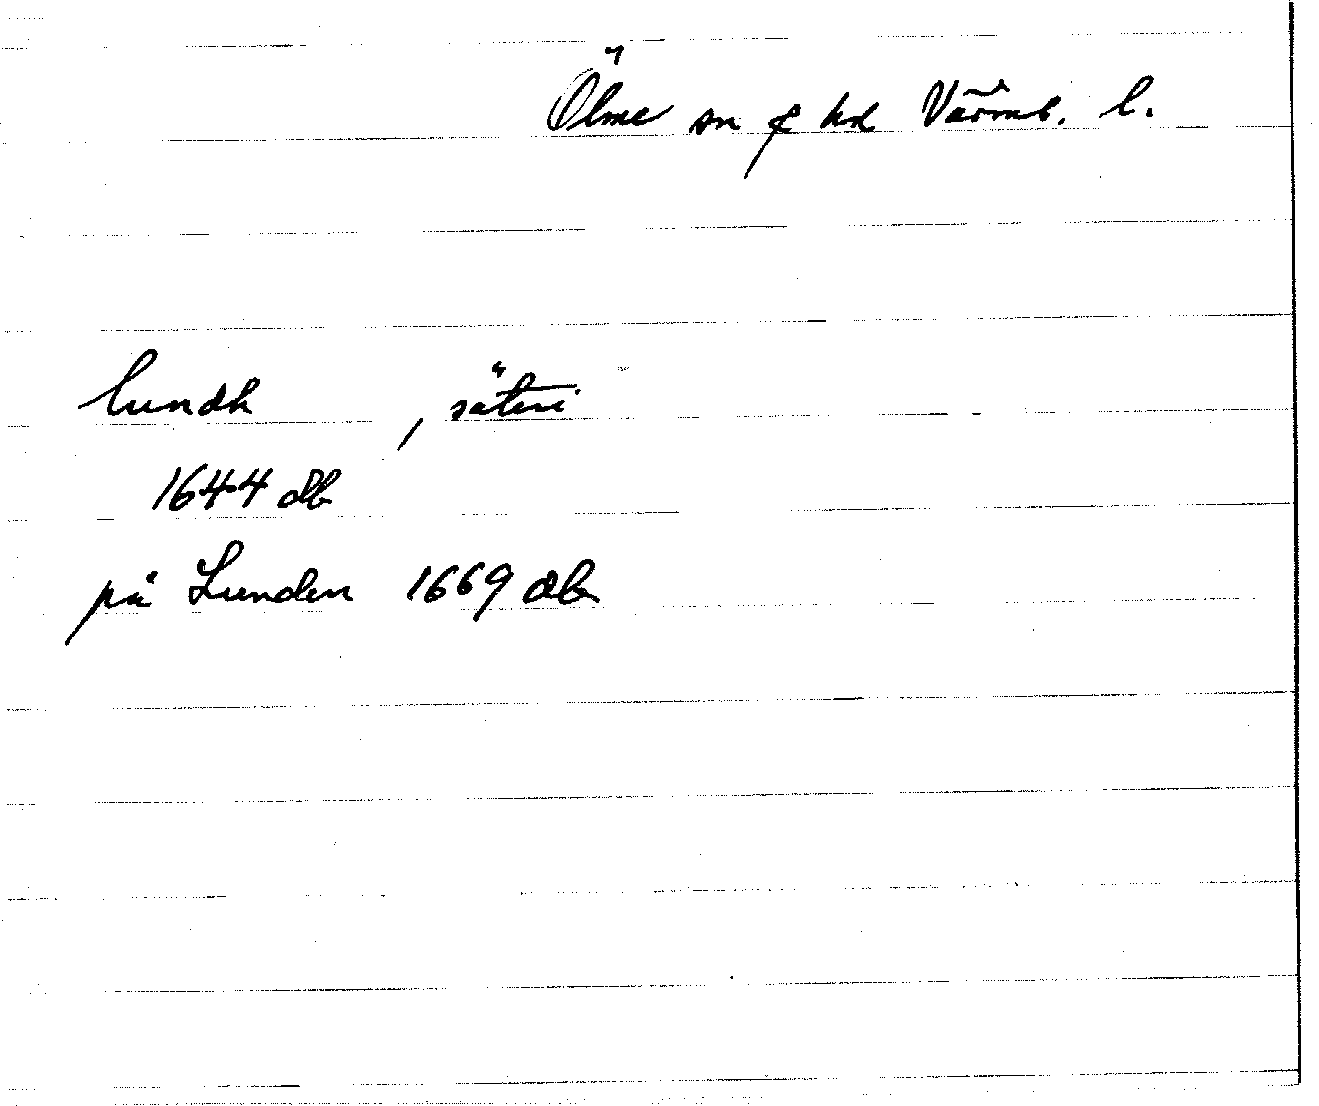 Ölme sn & hd Värml. l.
Lundh , säteri
1644 db
på Lunden 1669 db